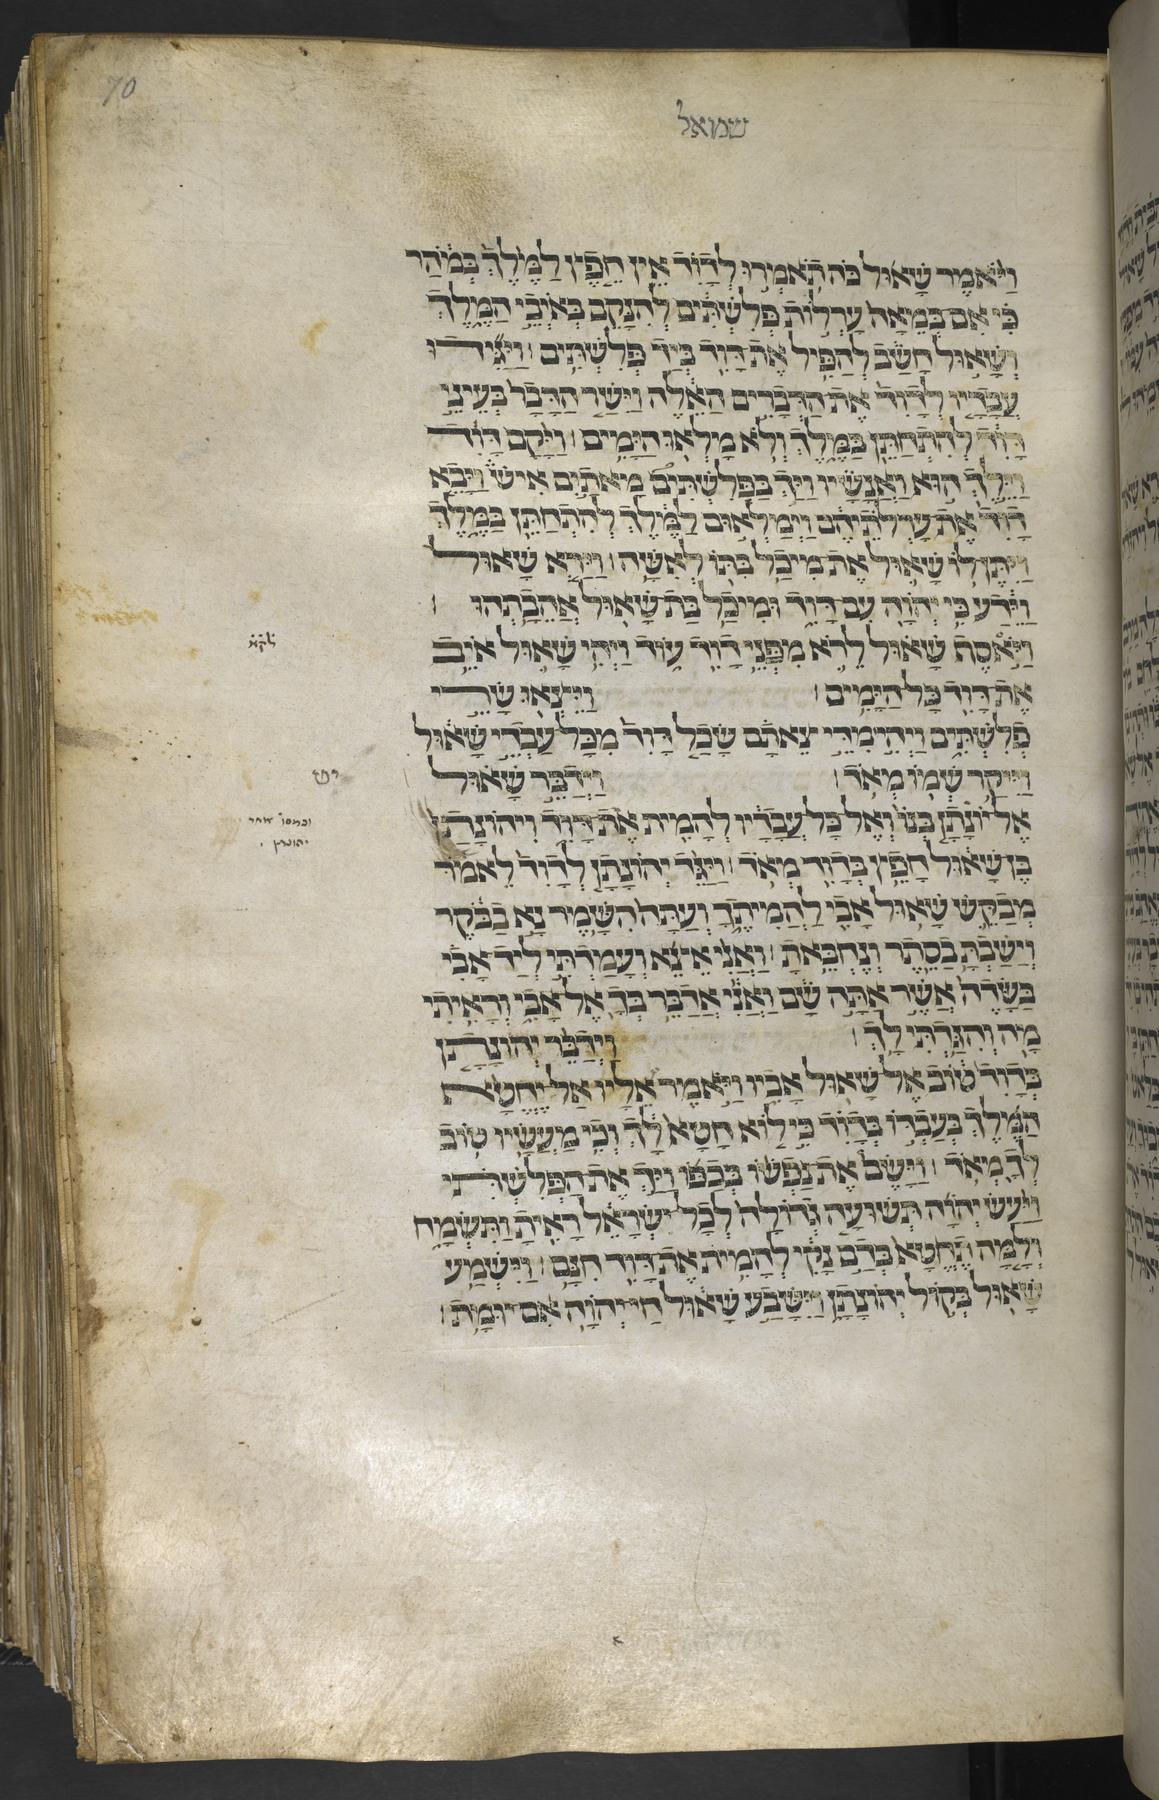 70
שמואל
וַיֹּאמֶר שָׁאוּל כֹּה תֹאמְרוּ לְדָוִד אֵין חֵפֶץ לַמֶּלֶךְ בְּמֹהַר
כִּי אִם בְּמֵאָה עָרְלוֹת פְּלִשְׁתִּים לְהִנָּקֵם בְּאוֹיְבֵי הַמֶּלֶךְ
וְשָׁאוּל חָשַׁב לְהַפִּיל אֶת דָּוִד בְּיַד פְּלִשְׁתִּים׃ וַיַּגִּדוּ
עֲבָדָיו לְדָוִד אֶת הַדְּבָרִים הָאֵלֶּה וַיִּשַׁר הַדָּבָר בְּעֵינֵי
דָוִד לְהִתְחַתֵּן בַּמֶּלֶךְ וְלֹא מָלְאוּ הַיָּמִים׃ וַיָּקָם דָּוִד
וַיֵּלֶךְ הוּא וַאֲנָשָׁיו וַיַּךְ בַּפְּלִשְׁתִּים מָאתַיִם אִישׁ וַיָּבֵא
דָוִד אֶת עָרְלֹתֵיהֶם וַיְמַלְאוּם לַמֶּלֶךְ לְהִתְחַתֵּן בַּמֶּלֶךְ
וַיִּתֶּן לוֹ שָׁאוּל אֶת מִיכַל בִּתּוֹ לְאִשָּׁה׃ וַיַּרְא שָׁאוּל
וַיֵּדַע כִּי יְהוָה עִם דָּוִד וּמִיכַל בַּת שָׁאוּל אֲהֵבָתְהוּ׃
וַיֹּאסֶף שָׁאוּל לֵרֹא מִפְּנֵי דָוִד עוֹד וַיְהִי שָׁאוּל אֹיֵב
אֶת דָּוִד כָּל הַיָּמִים׃ וַיֵּצְאוּ שָׂרֵי
פְלִשְׁתִּים וַיְהִי מִדֵּי צֵאתָם שָׂכַל דָּוִד מִכֹּל עַבְדֵי שָׁאוּל
וַיִּיקַר שְׁמוֹ מְאֹד׃ וַיְדַבֵּר שָׁאוּל
אֶל יוֹנָתָן בְּנוֹ וְאֶל כָּל עֲבָדָיו לְהָמִית אֶת דָּוִד וִיהוֹנָתָן
בֶּן שָׁאוּל חָפֵץ בְּדָוִד מְאֹד׃ וַיַּגֵּד יְהוֹנָתָן לְדָוִד לֵאמֹר
מְבַקֵּשׁ שָׁאוּל אָבִי לַהֲמִיתֶךָ וְעַתָּה הִשָּׁמֶר נָא בַבֹּקֶר
וְיָשַׁבְתָּ בַסֵּתֶר וְנַחְבֵּאתָ׃ וַאֲנִי אֵצֵא וְעָמַדְתִּי לְיַד אָבִי
בַּשָּׂדֶה אֲשֶׁר אַתָּה שָׁם וַאֲנִי אֲדַבֵּר בְּךָ אֶל אָבִי וְרָאִיתִי
מָה וְהִגַּדְתִּי לָךְ׃ וַיְדַבֵּר יְהוֹנָתָן
בְּדָוִד טוֹב אֶל שָׁאוּל אָבִיו וַיֹּאמֶר אֵלָיו אַל יֶחֱטָא
הַמֶּלֶךְ בְּעַבְדּוֹ בְדָוִד כִּי לוֹא חָטָא לָךְ וְכִי מַעֲשָׂיו טוֹב
לְךָ מְאֹד׃ וַיָּשֶׂם אֶת נַפְשׁוֹ בְכַפּוֹ וַיַּךְ אֶת הַפְּלִשְׁתִּי
וַיַּעַשׂ יְהוָה תְּשׁוּעָה גְדוֹלָה לְכָל יִשְׂרָאֵל רָאִיתָ וַתִּשְׂמָח
וְלָמָּה תֶחֱטָא בְּדָם נָקִי לְהָמִית אֶת דָּוִד חִנָּם׃ וַיִּשְׁמַע
שָׁאוּל בְּקוֹל יְהוֹנָתָן וַיִּשָּׁבַע שָׁאוּל חַי יְהוָה אִם יוּמָת׃